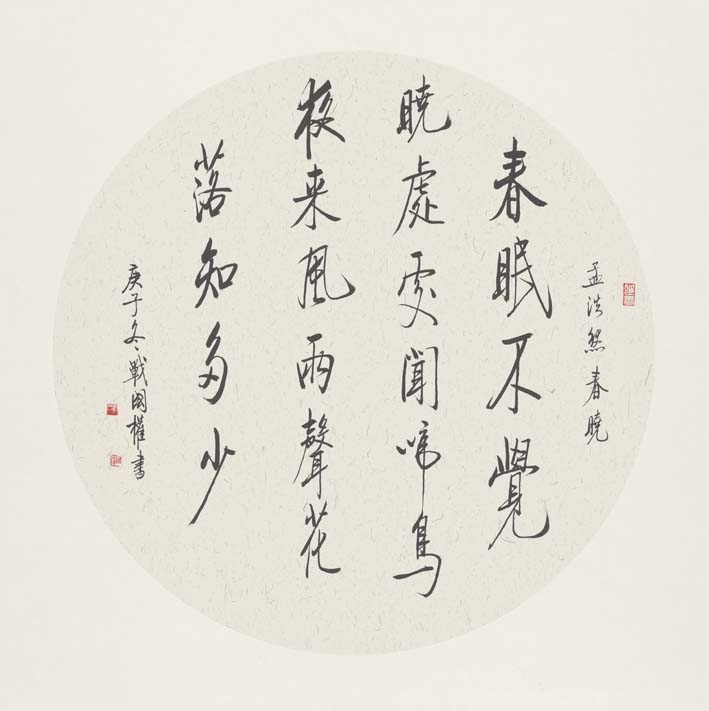 孟浩然春曉
春眠不覺
曉處處聞啼鳥
夜来風雨聲花
落知多少
庚子冬戰國權書